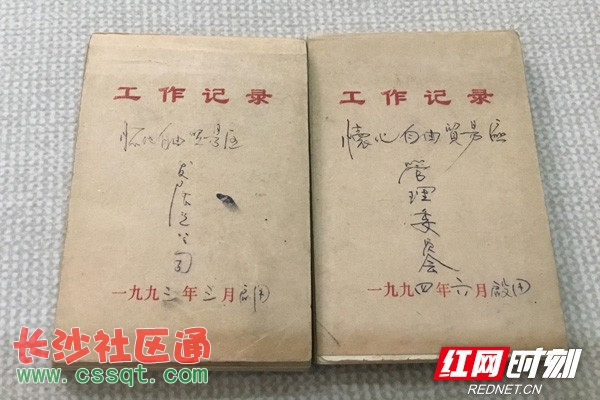 工作记录
怀化自由贸易区
发展总公司
一九九三年三月启用
工作记录
懷化自由貿易區
管理委员会
一九九四年六月啟用
长沙社区通
www.cssqt.com
红网时刻
REDNET.CN